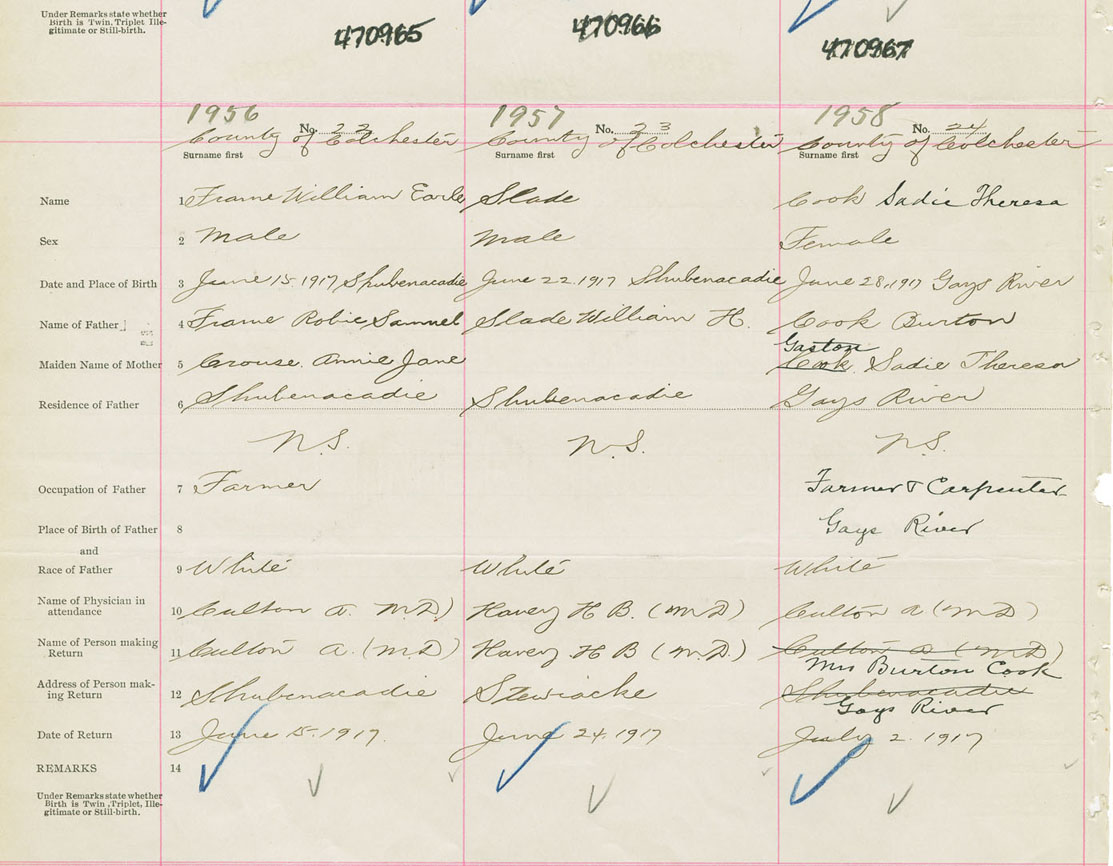 Under Remarks state whether
Birth is Twin, Triplet, Ille-
gitimate or Still-birth.
470965 470966 470967
1956 1957 1958
No. 22 No. 23 No. 24
County of Colchester County of Colchester County of Colchester
Surname first Surname first Surname first
Name 1 Frame William Earle Slade Cook Sadie Theresa
Sex 2 Male Male Female
Date and Place of Birth 3 June 15 1917 Shubenacadie June 22. 1917 Shubenacadie June 28, 1917 Gays River
Name of Father 4 Frame Robie Samuel Slade William H. Cook Burton
Gaston
Maiden Name of Mother 5 Crouse. Annie Jane Cook, Sadie Theresa
Residence of Father 6 Shubenacadie Shubenacadie Gays River
N.S. N.S. N.S.
Occupation of Father 7 Farmer Farmer & Carpenter
Place of Birth of Father 8 Gays River
and
Race of Father 9 White White White
Name of Physician in
attendance 10 Culton A. M.D) Havey H B. (M.D) Culton A (M.D)
Name of Person making
Return 11 Culton A. (M.D) Havey H B (M.D.) Culton A (M.D)
Mrs Burton Cook
Address of Person mak-
ing Return 12 Shubenacadie Stewiacke Shubenacadie
Gays River
Date of Return 13 June 15. 1917. June 24. 1917 July 2. 1917
REMARKS 14
Under Remarks state whether
Birth is Twin, Triplet, Ille-
gitimate or Still-birth.